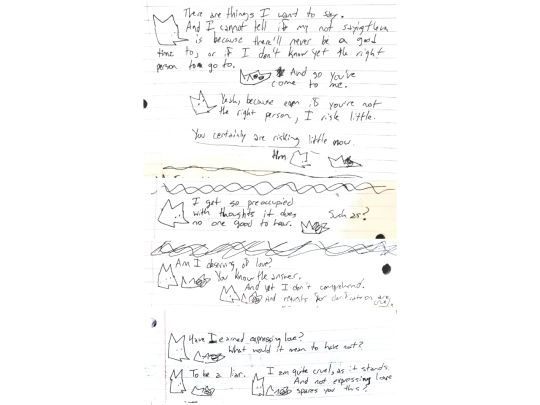 There are things I want to say.
And I cannot tell if my not saying them
is because there'll never be a good
time to, or if I don't know yet the right
person to go to.
And so you've
come to me.
Yeah, because even if you're not
the right person, I risk little.
You certainly are risking little now.
Hm
I get so preoccupied
with thoughts it does
no one good to hear.
Such as?
Am I deserving of love?
You know the answer.
And yet I don't comprehend.
And requests for clarification are
Have I earned expressing love?
What would it mean to have not?
To be a liar.
I am quite cruel, as it stands.
And not expressing love
spares you this?